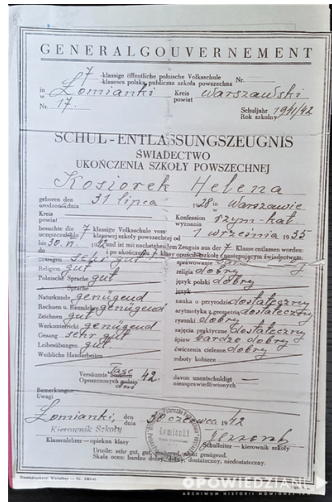 GENERALGOUVERNEMENT
7 -klassige öffentliche polnische Volksschule
klasowa polska publiczna szkoła powszechna Nr.
in Łomianki Kreis Warszawski
w powiat
Nr. 17. Schuljahr 1941/42
Rok szkolny
SCHUL-ENTLASSUNGSZEUGNIS
ŚWIADECTWO
UKOŃCZENIA SZKOŁY POWSZECHNEJ
Kosiorek Helena
geboren den 31 lipca 1928 in Warszawie
urodzona dnia w
Kreis Konfession rzym-kat.
powiat wyznania
besuchte die 7 klassige Volksschule vom 1 września 1935
uczęszczała do klasowej szkoły powszechnej od
bis 30.VI. 1942 und ist mit nachstehendem Zeugnis aus der 7 Klasse entlassen worden:
do i po ukończeniu klasy opuściła szkołę z następującym świadectwem:
Betragen sehr gut sprawowanie
Religion gut religia dobry
Polnische Sprache gut język polski dobry
Sprache język
Naturkunde genügend nauka o przyrodzie dostateczny
Rechnen und Raumlehre genügend arytmetyka z geometrią dostateczny
Zeichnen gut rysunki dobry
Werkunterricht genügend zajęcia praktyczne dostateczny
Gesang sehr gut śpiew bardzo dobry
Leibesübungen gut ćwiczenia cielesne dobry
Weibliche Handarbeiten roboty kobiece
Versäumte Tage 42, davon unentschuldigt
Opuszczonych dni w tym nieusprawiedliwionych
Bemerkungen
Uwagi
Łomianki, den 30 czerwca 1942
dnia
Kierownik Szkoły
Klassenlehrer — opiekun klasy Schulleiter — kierownik szkoły
Urteile: sehr gut, gut, genügend, mangelhaft, ungenügend.
Skala ocen: bardzo dobry, dobry, dostateczny, niedostateczny.
OPOWIEDZIANE
ARCHIWUM HISTORII MÓWIONEJ